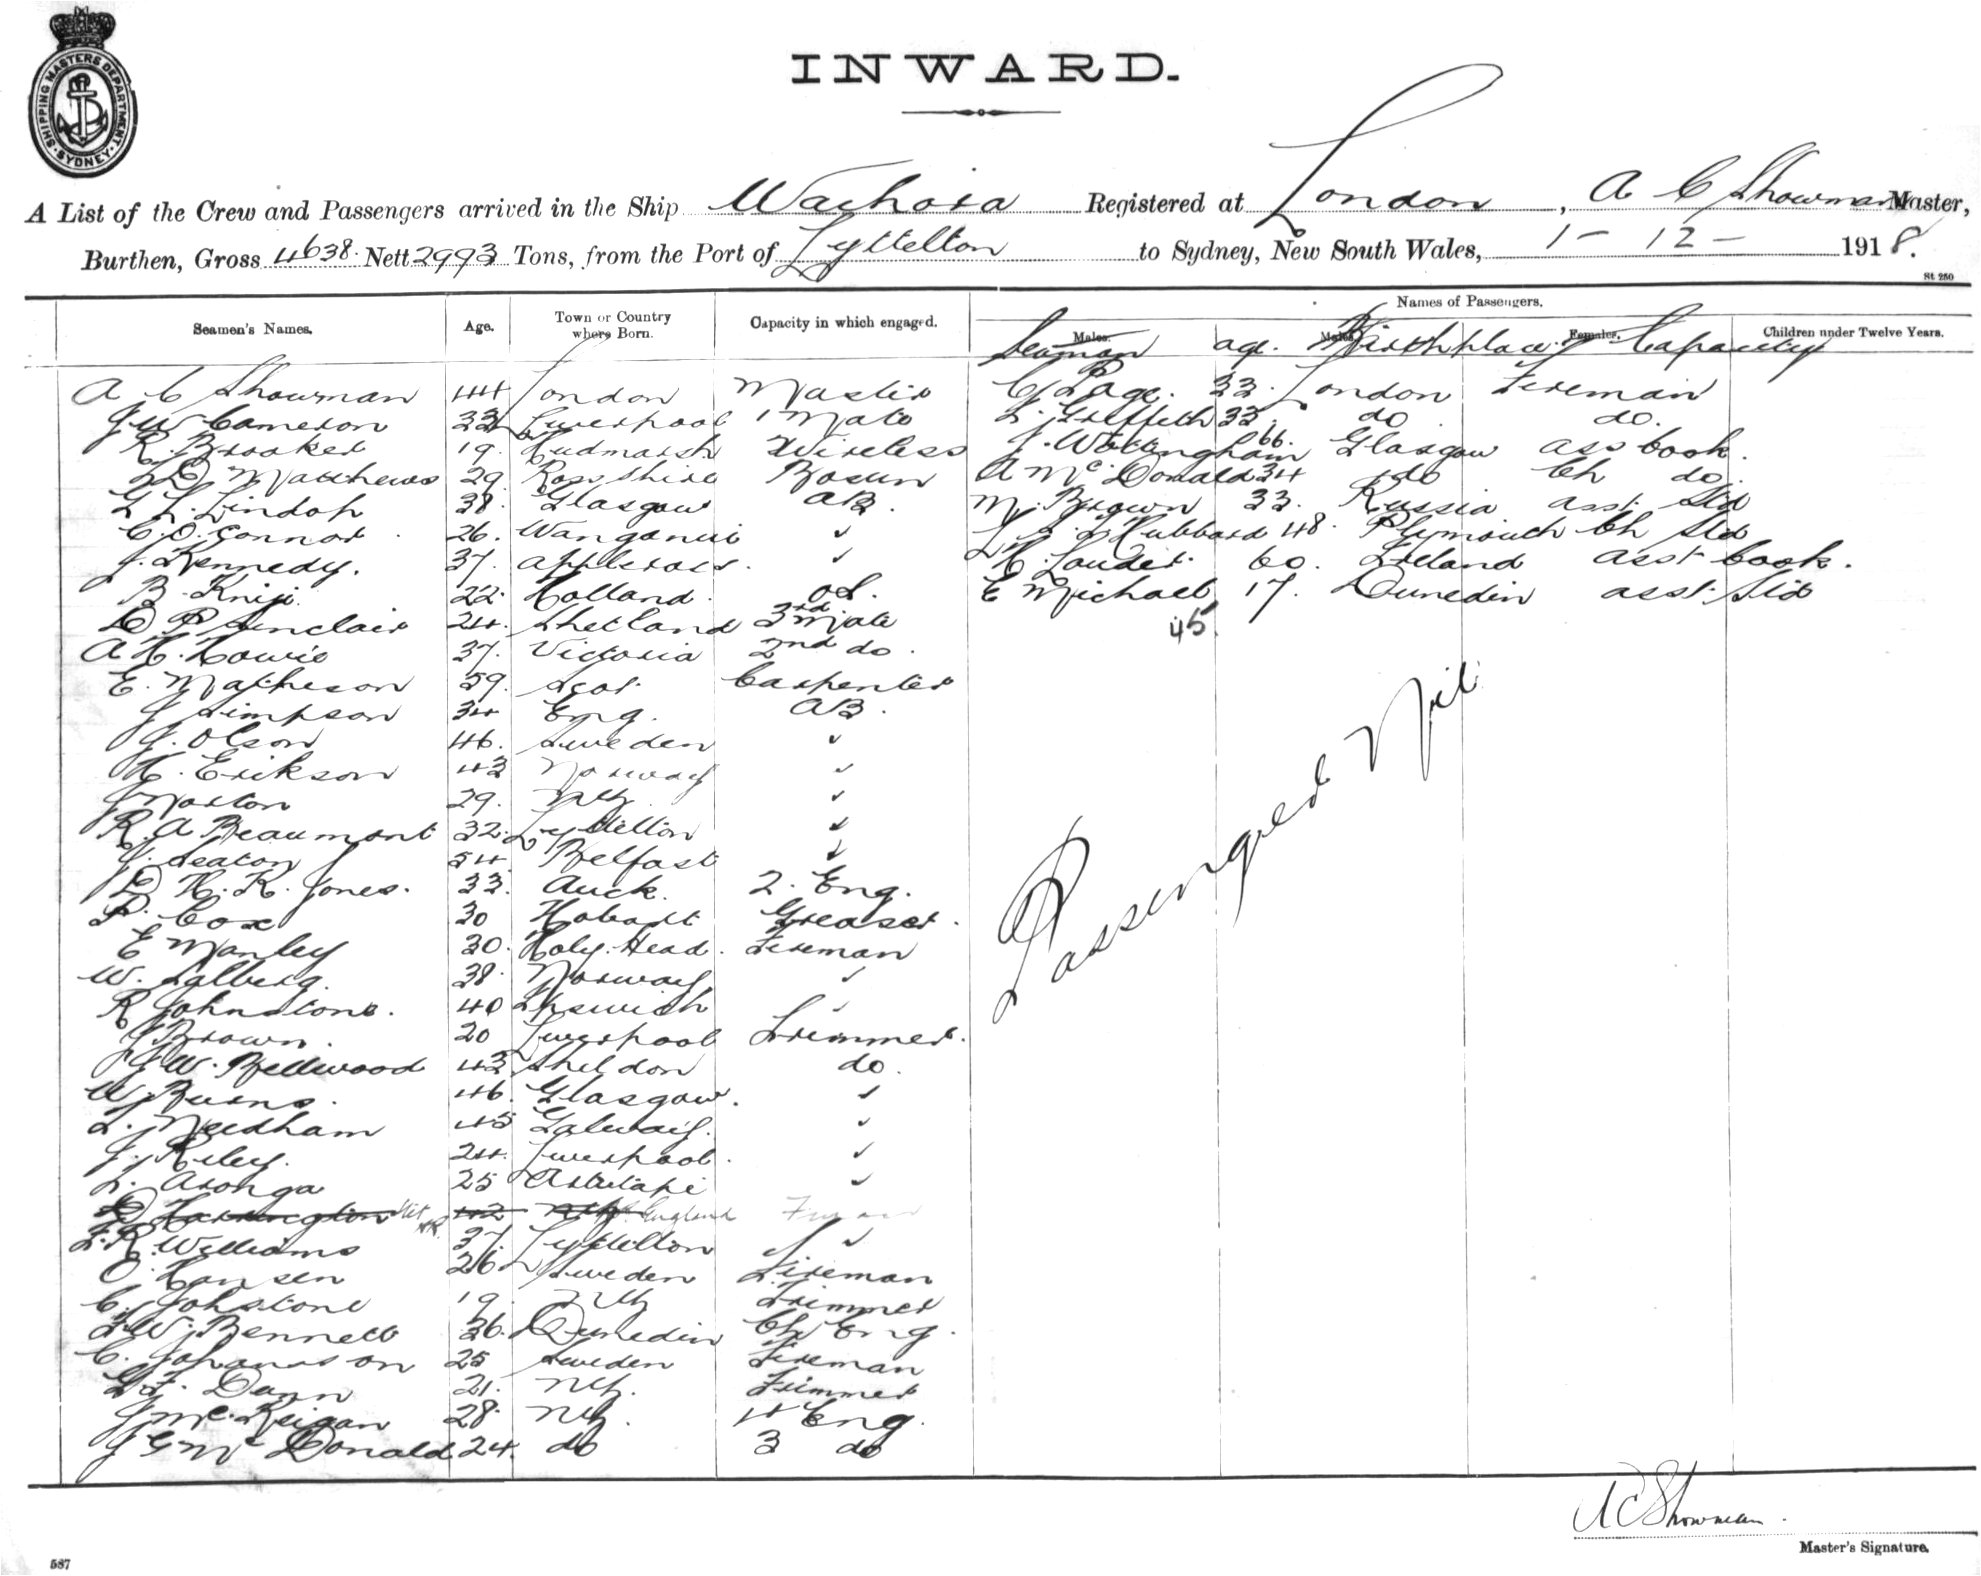 SHIPPING MASTERS DEPARTMENT. SYDNEY.
INWARD.
A List of the Crew and Passengers arrived in the Ship Waihora Registered at London, A C Showman Master,
Burthen, Gross 4638. Nett 2993 Tons, from the Port of Lyttelton to Sydney, New South Wales, 1 - 12 - 1918.
St 250
Seamen's Names. Age. Town or Country where Born. Capacity in which engaged. Names of Passengers.
Males. Males. Females. Children under Twelve Years.
Seaman age. Birthplace. Capacity
A C Showman 44 London Master
J W Cameron 33 Liverpool 1 Mate
R. Brooker 19. Hindmarsh Wireless
D Matthews 29. Ross Shire Bosun
L. Lindop 38. Glasgow AB.
C. O'Connor 26. Wanganui ✓
J. Kennedy. 37. Applecross. ✓
B. Knije 22. Holland. OS.
D P Sinclair 24. Shetland 3rd Mate
A H. Howie 37. Victoria 2nd do.
E. Matheson 59. Scot. Carpenter
J Simpson 34 Eng. AB.
J. Olson 46. Sweden ✓
H. Erikson 43 Norway ✓
J Maston 29. NZ. ✓
R. A Beaumont 32. Lyttelton ✓
J. Seaton 54. Belfast ✓
D H. R. Jones. 33. Auck. 2. Eng.
P. Cox 30 Hobart Greaser.
E Manley 30. Holy. Head. Fireman
W. Salberg. 38. Norway ✓
R Johnstone. 40 Ipswich ✓
J Brown. 20 Liverpool Trimmer.
J W. Bellwood 43 Sheldon do.
W. Burns. 46. Glasgow. ✓
L. Needham 45 Galway. ✓
J. Riley. 24. Liverpool. ✓
L. Aronga 25 Aitutaki ✓
D Farrington 42 NZ. England
L. R. Williams 37. Lyttelton ✓
O. Hansen 26 Sweden Fireman
C. Johstone 19. NZ Trimmer
W. Bennett 36. Dunedin Ch Eng.
C. Johansson 25 Sweden Fireman
F. Dunn 21. NZ. Trimmer
J McKeigan 28. NZ. 4 Eng.
J G McDonald 24. do 3 do
C Page. 33. London Fireman
L. Griffith 33. do do.
J. Wottingham 66. Glasgow ass cook.
A McDonald 34 do Ch do.
M. Brown 33. Russia asst. Std
Hubbard 48. Plymouth Ch Std
H. Lauder. 60. Ireland asst cook.
E Michael 17. Dunedin asst. Std
45.
Passengers Nil
A C Showman.
Master's Signature.
587